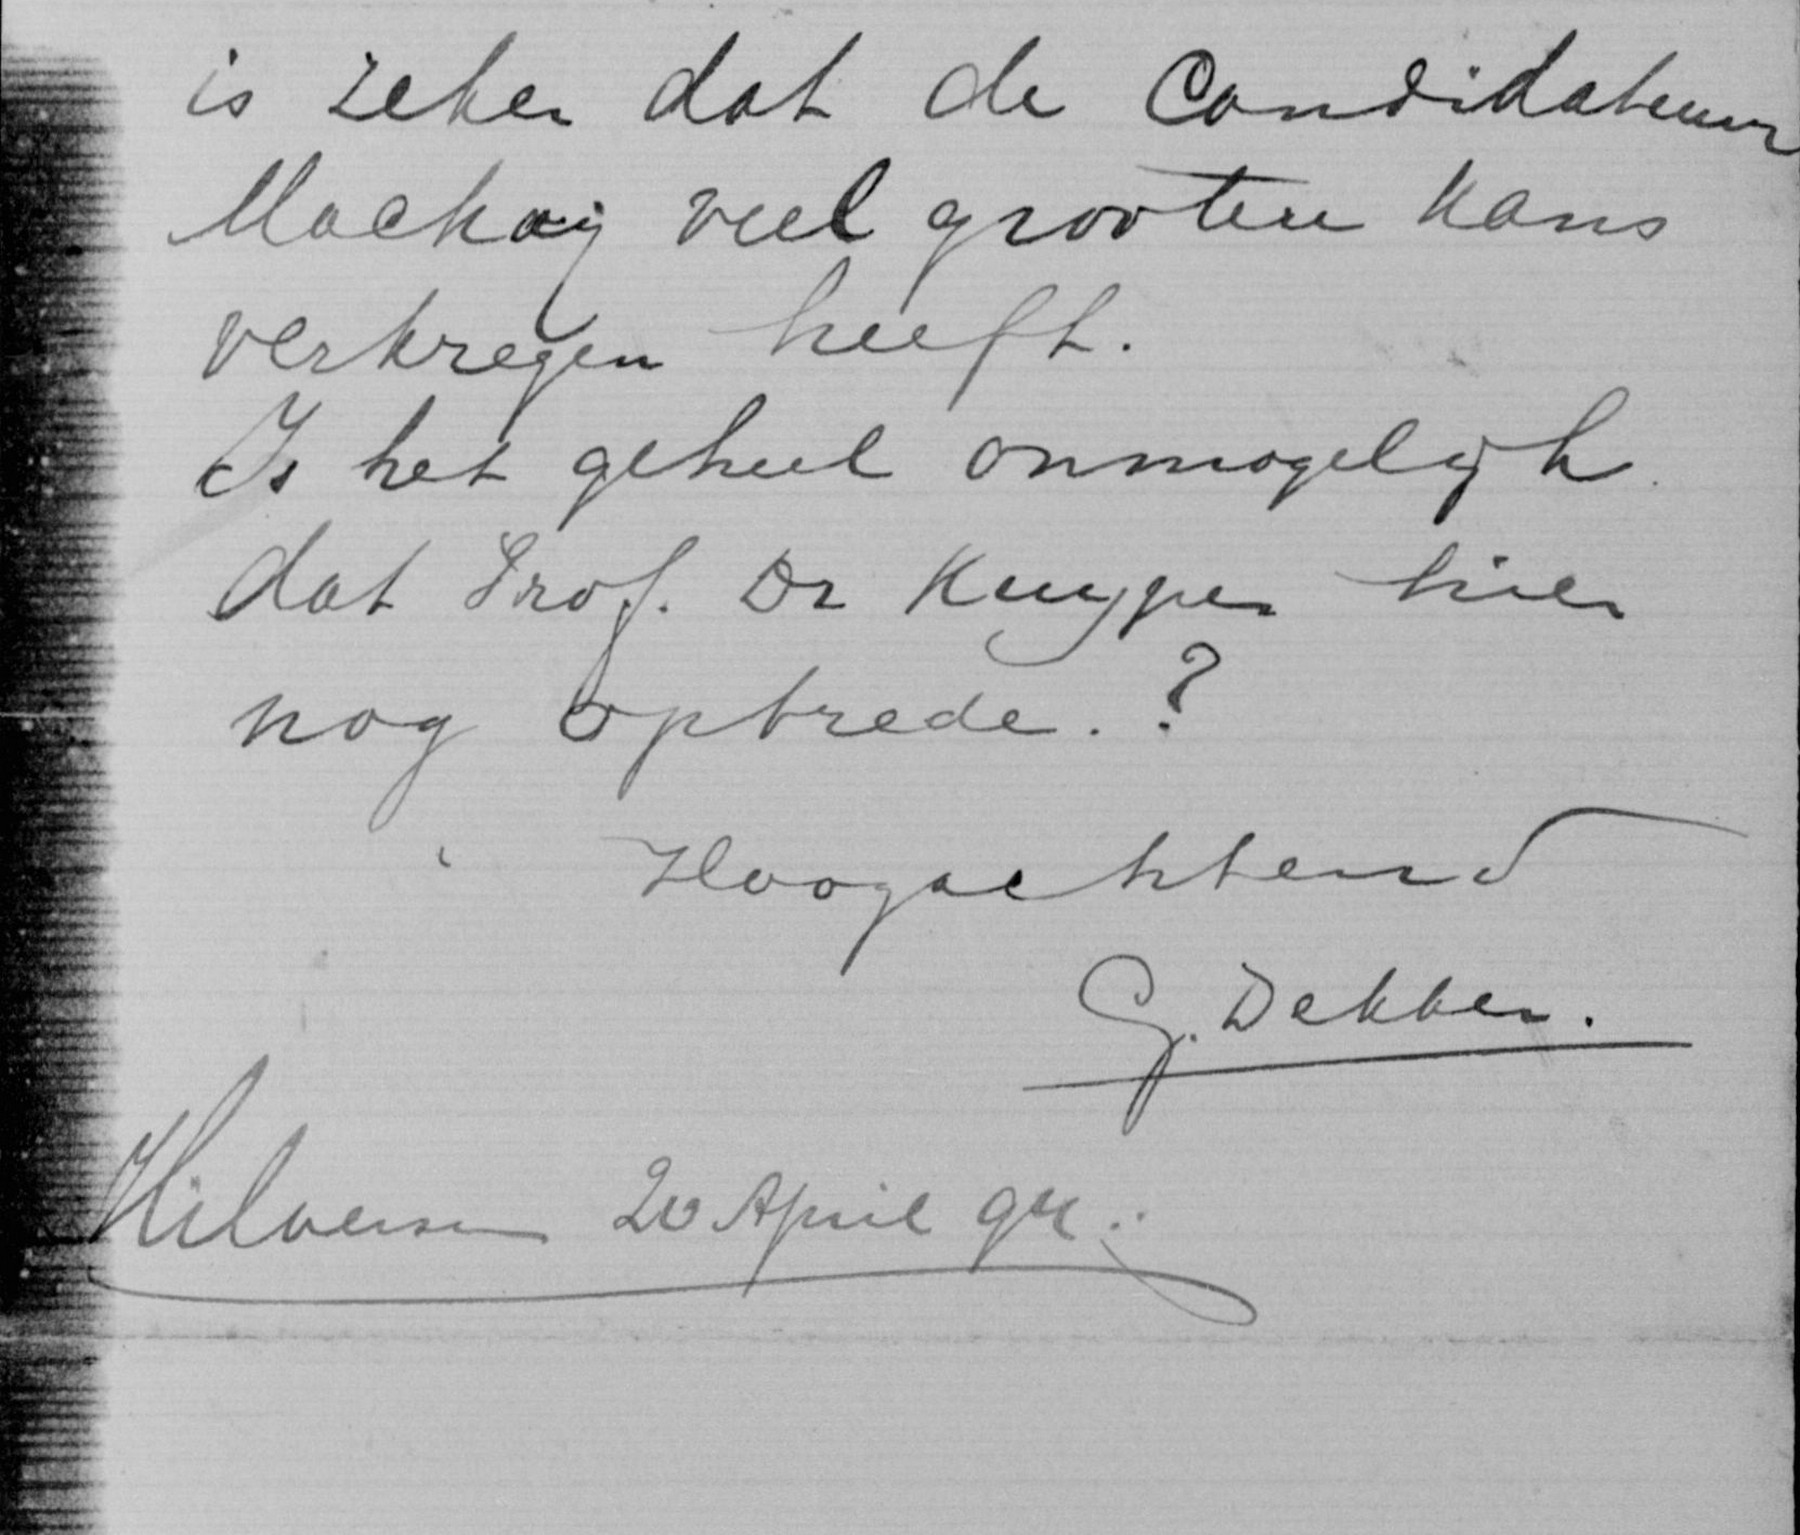 is zeker dat de Candidatuur
Mackay veel grooter kans
verkregen heeft.
Is het geheel onmogelijk
dat Prof. Dr Kuyper hier
nog optrede. ?
Hoogachtend
G. Dekker.
Hilversm 20 April 94.